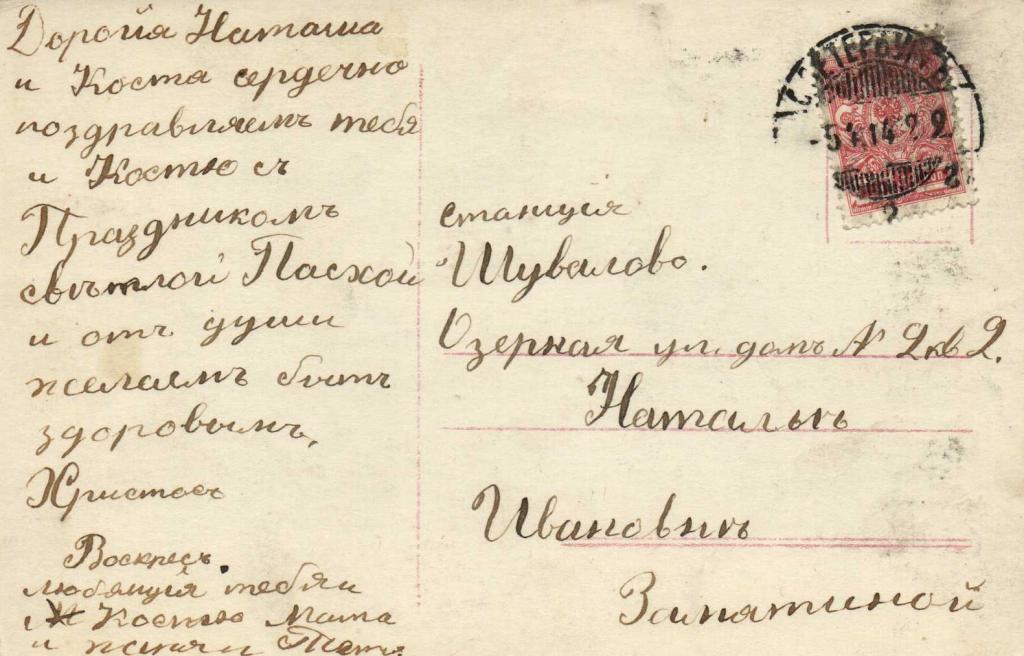 Дорогія Наташа
и Коста сердечно
поздравляемъ тебя
и Костю съ
Праздникомъ
свѣтлой Пасхой
и отъ души
желаемъ быть
здоровымъ,
Христосъ
Воскресъ.
любящія тебя и
Костю Мама
и
станція
Шувалово.
Озерная ул. домъ № 2 кв 2.
Натальѣ
Ивановнѣ
Замятиной
С.ПЕТЕРБУРГЪ
-5 4 14